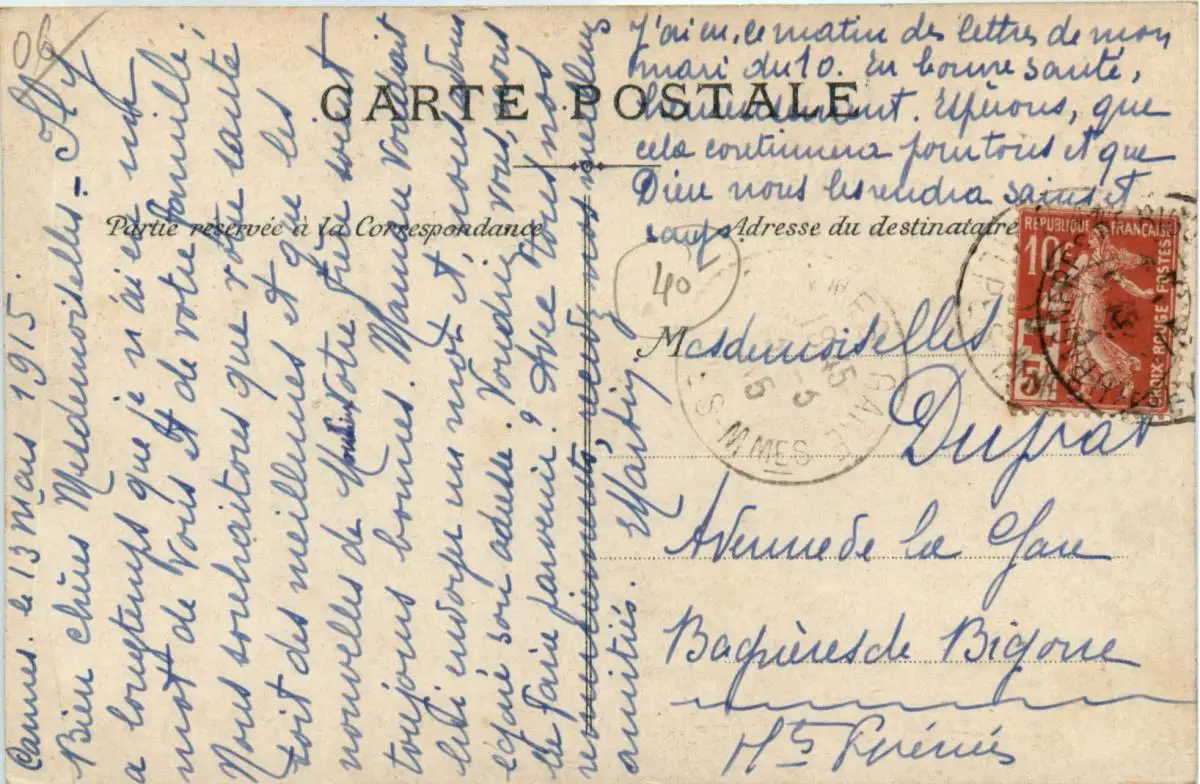 06
Cannes. le 13 Mars 1915.
Bien chères Mesdemoiselles - Il y
a longtemps que je n'ai eu un
mot de Vous et de votre famille ;
Nous souhaitons que votre santé
soit des meilleures et que les
nouvelles de Votre frère soient
toujours bonnes. Maman Voudrait
lui envoyer un mot et, nous avons
égaré son adresse. Voudriez vous, nous
le faire parvenir ? Avec tous nos
remerciements, recevez nos meilleurs
amitiés. E Martin
J'ai eu, ce matin des lettres de mon
mari du 10. En bonne santé,
heureusement. Espérons, que
cela continuera pour tous et que
Dieu nous les rendra sains et
saufs.
CARTE POSTALE
Partie réservée à la Correspondance
Adresse du destinataire
40
RÉPUBLIQUE FRANÇAISE
10c
+5c
CROIX-ROUGE POSTES
GARE
Mesdemoiselles
Duprat
Avenue de la Gare
Bagnères de Bigorre
Htes Pyrénées